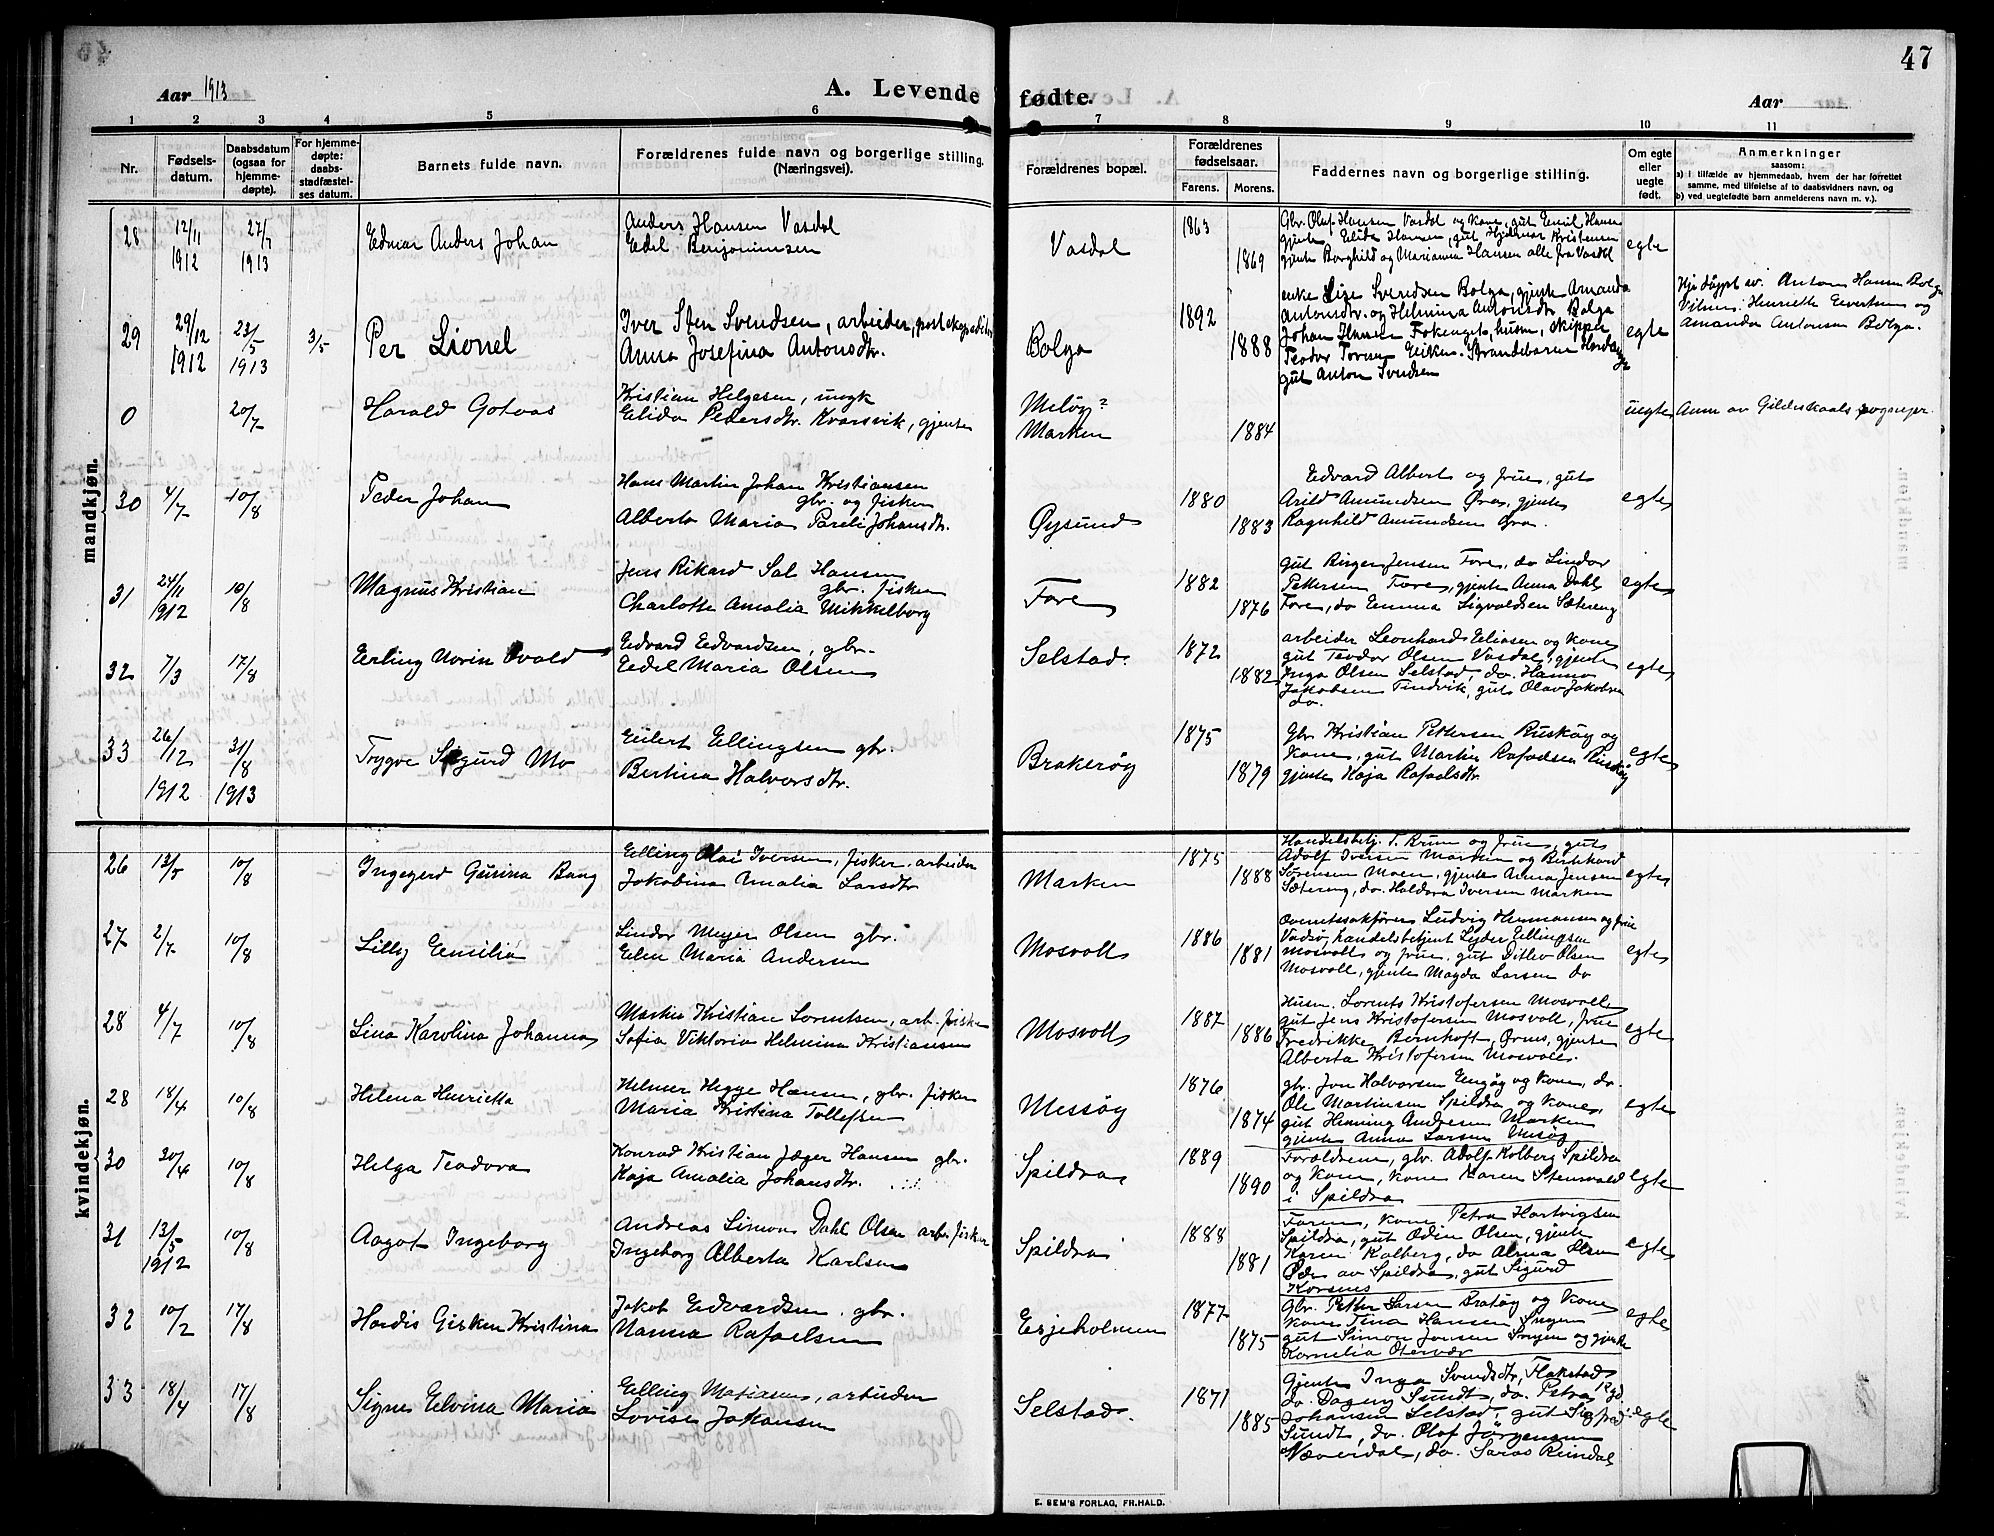 47
Aar 1913
A. Levende fødte.
Aar
1 2 3 4 5 6 7 8 9 10 11
Nr.
Fødsels-
datum.
Daabsdatum
(ogsaa for
hjemme-
døpte).
For hjemme-
døpte:
daabs-
stadfæstel-
ses datum.
Barnets fulde navn.
Forældrenes fulde navn og borgerlige stilling.
(Næringsvei).
Forældrenes bopæl.
Forældrenes
fødselsaar.
Farens. Morens.
Faddernes navn og borgerlige stilling.
Om egte
eller
uegte
født.
Anmerkninger
saasom:
a) i tilfælde av hjemmedaab, hvem der har forrettet
samme, med tilføielse af to daabsvidners navn, og
b) ved uegtefødte barn anmelderens navn m. v.).
mandkjøn.
28
12/11
1912
27/7
1913
Edmar Anders Johan
Anders Hansen Vasdal
Edil Benjaminsen
Vasdal
1863
1869
Gbr. Oluf Hansen Vasdal og kone, gut Emil Hansen
gjente Elida Hansen, gut Hjelmar Kristensen
gjente Borghild og Marianna Hansen alle fra Vasdal
egte
29
29/12
1912
23/5
1913
3/5
Per Lionel
Iver Sten Svendsen, arbeider, postekspeditør
Anna Josefina Antonsdtr.
Bolga
1892
1888
enke Lise Svendsen Bolga, gjente Amanda
Antonsdtr. og Helmina Antonsdtr Bolga
Johan Hansen husm, skipper
Teodor Strandebarm Hardanger
gut Anton Svendsen
egte
Hjdøppt av: Anton Hansen Bolga
Vitner: Henriette Eivertsen og
Amanda Antonsen Bolga.
0
20/7
Harald Gotvas
Kristian Helgesen, ungk
Elida Pedersdtr. Kvarsvik, gjente
Meløy?
Marken
1884
uegte
Anm av Gildeskaals sogneper.
30
4/7
10/8
Peder Johan
Hans Martin Johan Kristiansen
gbr. og fisker
Alberta Maria Pareli Johansdtr.
Øysund
1880
1883
Edvard Albert og frue, gut
Arild Amundsen Øra, gjente
Ragnhild Amundsen Øra.
egte
31
24/11
1912
10/8
Magnus Kristian
Jens Rikard Sal Hansen
gbr. fisker
Charlotte Amalia Mikkelborg
Fore
1882
1876
gut Ringer Jensen Fore, do Lindor
Pettersen Fore, gjente Anna Dahl
Fore, do Emma Sigvaldsen Sætereng
egte
32
7/3
17/8
Erling Norin Ovald
Edvard Edvardsen, gbr.
Edel Maria Olsen
Selstad.
1872
1882
arbeider Leonhard Eliasen og kone
gut Teodor Olsen Vasdal, gjente
Inga Olsen Selstad, do. Hanna
Jakobsen Tindvik, gut Olav Jakobsen
do.
egte
33
26/12
1912
31/8
1913
Trygve Sigurd Mo
Eilert Ellingsen gbr.
Bertina Halvorsdtr.
Brakerøy
1875
1879
Gbr. Kristian Pettersen Ruskøy og
kone, gut Martin Rafaelsen Ruskøy
gjente Kaja Rafaelsdtr.
egte
kvindekjøn.
26
13/5
10/8
Ingegerd Gurina Bang
Elling Olai Iversen, fisker, arbeider
Jakobina Amalia Larsdtr
Marken
1875
1888
Handelsbetj. T. Brun og frue, gut
Adolf Iversen Marken og Bernhard
Sørensen Moen, gjente Anna Jensen
Sætereng, do. Haldora Iversen Marken
egte
27
2/7
10/8
Lilly Emilia
Lindor Meyer Olsen gbr.
Elen Maria Andersen
Mosvoll
1886
1881
Overretssakfører Ludvig Hermansen og frue
Vadsø, handelsbetjent Lyder Ellingsen
Mosvoll og frue, gut Ditlev Olsen
Mosvoll, gjente Magda Larsen do
egte
28
4/7
10/8
Lina Karolina Johanna
Martin Kristian Lorentsen, arb. fisker
Sofia Viktoria Helmina Kristiansen
Mosvoll
1887
1886
Husm. Lorents Kristofersen Mosvoll
gut Jens Kristofersen Mosvoll, frue
Fredrikke Bernhoft, Ørnes, gjente
Alberta Kristofersen Mosvoll.
egte
28
18/4
10/8
Helena Henrietta
Helmer Hegge Hansen, gbr. fisker
Maria Kristina Tollefsen
Messøy
1876
1874
gbr. Jon Halvorsen Engøy og kone, do.
Ole Martinsen Spildra og kone,
gut Henning Andresen Marken
gjente Anna Larsen Mesøy
egte
30
20/4
10/8
Helga Teodora
Konrad Kristian Jæger Hansen gbr.
Kaja Amalia Johansdtr.
Spildra
1889
1890
Forældrene, gbr. Adolf Kolberg Spildra
og kone, kone Karen Stenvold
i Spildra
egte
31
13/5
1912
10/8
Aagot Ingeborg
Andreas Simon Dahl Olsen arb. fisker
Ingeborg Alberta Karlsen
Spildra
1888
1881
Faren, kone Petra Hartvigsen
Spildra, gut Odin Olsen, gjente
Karen Kolberg, do Alma Olsen
av Spildra, gut Sigurd
Korsnes
egte
32
10/2
17/8
Hordis Gisken Kristina
Jakob Edvardsen gbr.
Nanna Rafaelsen
Esjeholmen
1877
1875
Gbr. Petter Larsen Bratøy og kone
kone Tina Hansen Sørgen
gut Simon Jensen og gjente
Kornelia Otervær
egte
33
18/4
17/8
Signe Elvina Maria
Elling Matiasen, arbeider
Lovise Johansen
Selstad.
1871
1885
Gjente Inga Svendsdtr, Flakstad
do. Dagny Sundt, do. Petra
Johansen Selstad, gut Sigfred
Sundt, do. Olof Jørgensen
Næverdal, do. Saras Reindal
egte
E. SEM'S FORLAG, FR.HALD.